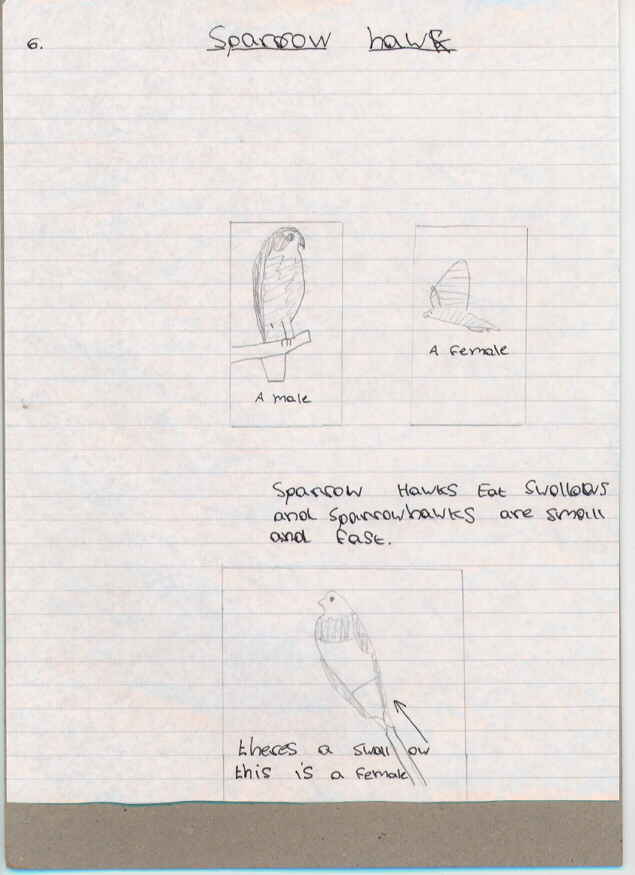 6.
Sparrow hawk
A male
A female
Sparrow Hawks Eat Swollows
and Sparrowhawks are small
and fast.
theres a swallow
this is a female